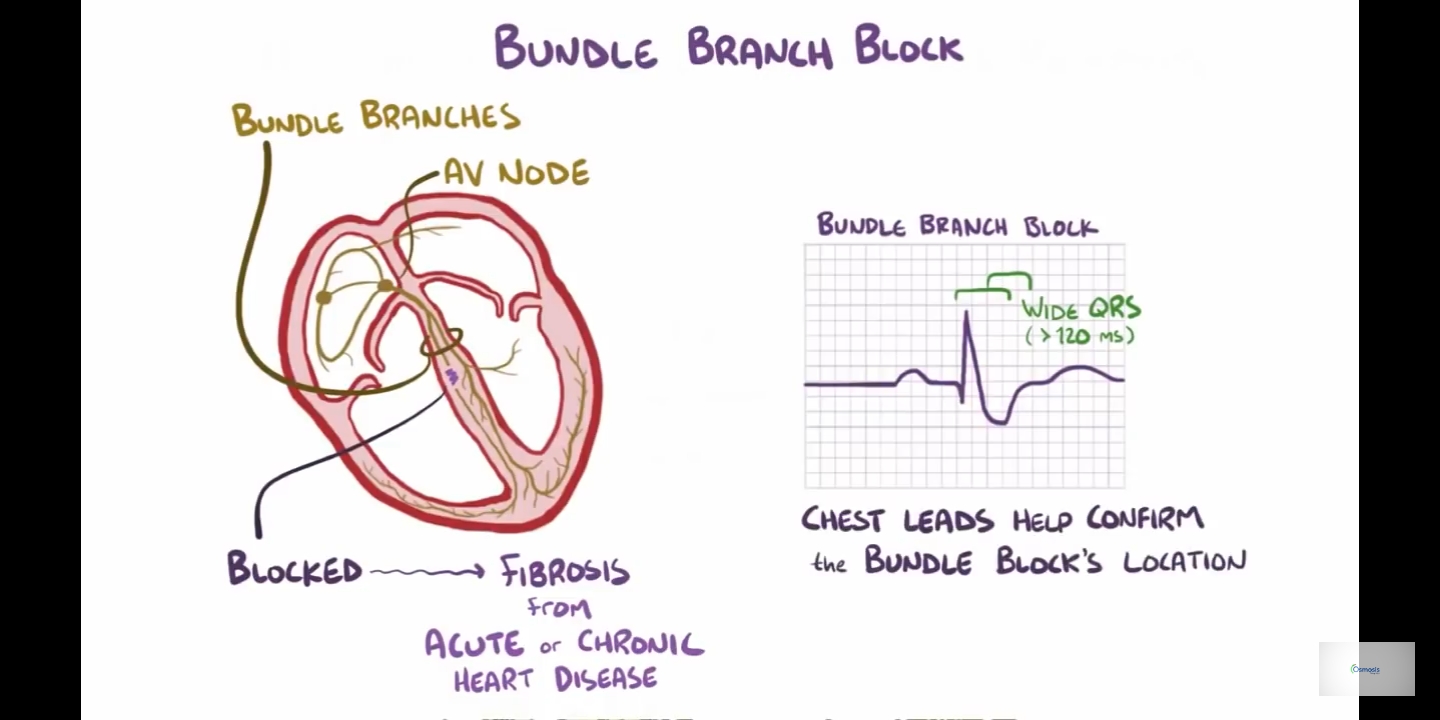 BUNDLE BRANCH BLOCK
BUNDLE BRANCHES
AV NODE
BLOCKED
FIBROSIS
from
ACUTE or CHRONIC
HEART DISEASE
BUNDLE BRANCH BLOCK
WIDE QRS
(>120 ms)
CHEST LEADS HELP CONFIRM
the BUNDLE BLOCK'S LOCATION
Osmosis